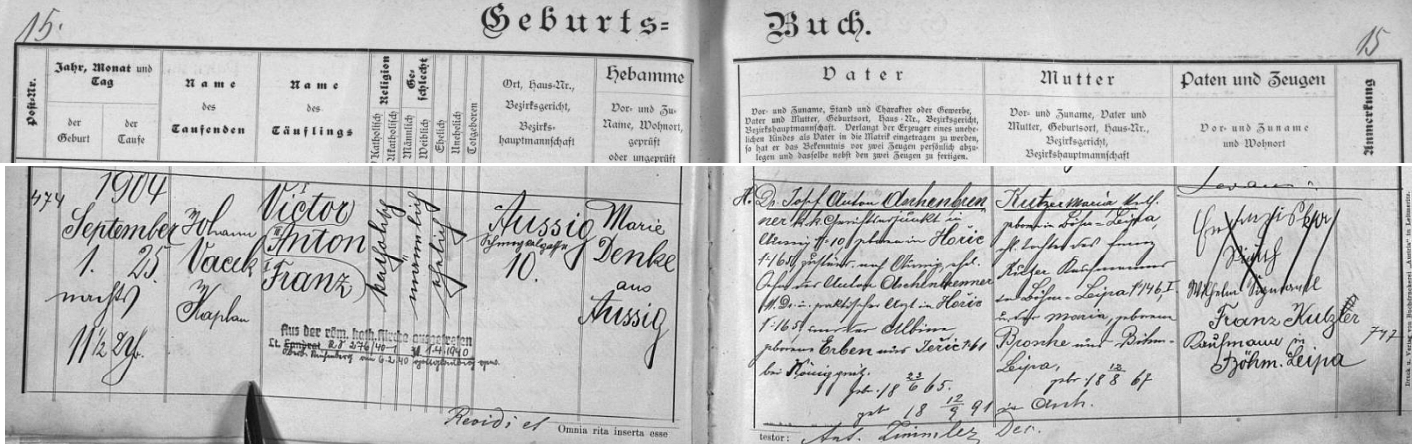 15.
Geburts=
Buch.
15
Post-Nr.
Jahr, Monat und
Tag
der
Geburt
der
Taufe
Name
des
Taufenden
Name
des
Täuflings
Religion
Katholisch
Akatholisch
Ge-
schlecht
Männlich
Weiblich
Ehelich
Unehelich
Totgeboren
Ort, Haus-Nr.,
Bezirksgericht,
Bezirks-
hauptmannschaft
Hebamme
Vor- und Zu-
Name, Wohnort,
geprüft
oder ungeprüft
Vater
Vor- und Zuname, Stand und Charakter oder Gewerbe,
Vater und Mutter, Geburtsort, Haus-Nr., Bezirksgericht,
Bezirkshauptmannschaft. Verlangt der Erzeuger eines unehe-
lichen Kindes als Vater in die Matrik eingetragen zu werden,
so hat er das Bekenntnis vor zwei Zeugen persönlich abzu-
legen und dasselbe nebst den zwei Zeugen zu fertigen.
Mutter
Vor- und Zuname, Vater und
Mutter, Geburtsort, Haus-Nr.,
Bezirksgericht,
Bezirkshauptmannschaft
Paten und Zeugen
Vor- und Zuname
und Wohnort
Anmerkung
474
1904
September
1. 25.
nachts
11½ Uhr
Johann
Vacek
Kaplan
Victor
Anton
Franz
katholisch
männlich
ehelich
Aussig
10.
Marie
Denke
aus
Aussig
Aus der röm. kath. Kirche ausgetreten
1.4.1940
Dr. Josef Anton Aschenbren
ner k.k. Gerichtsadjunkt in
Aussig No 10, geboren in Hořic
No 165, zuständ. nach Aussig, ehel.
Sohn des Anton Aschenbrenner
M. Dr. u. praktischer Arzt in Hořic
No 165 und der Albine
geborene Erben aus Jeřic No 61
bei Königgrätz.
geb. 18 23/6 65.
get. 18 12/9 91 in Asch.
Kutzer Maria kath.
geboren in Böhm-Leipa,
ehl. Tochter des Franz
Kutzer Kaufmannes
in Böhm-Leipa No 146/I
u. der Maria, geborene
Pronke aus Böhm-
Leipa,
gebr. 18 12/8 67
Wilhelm
Franz Kutzer
Kaufmann in
Böhm. Leipa
747
Revidi et
Omnia rita inserta esse
testor:
Ant.
Dec.
Druck u. Verlag von Buchdruckerei „Austria“ in Leitmeritz.